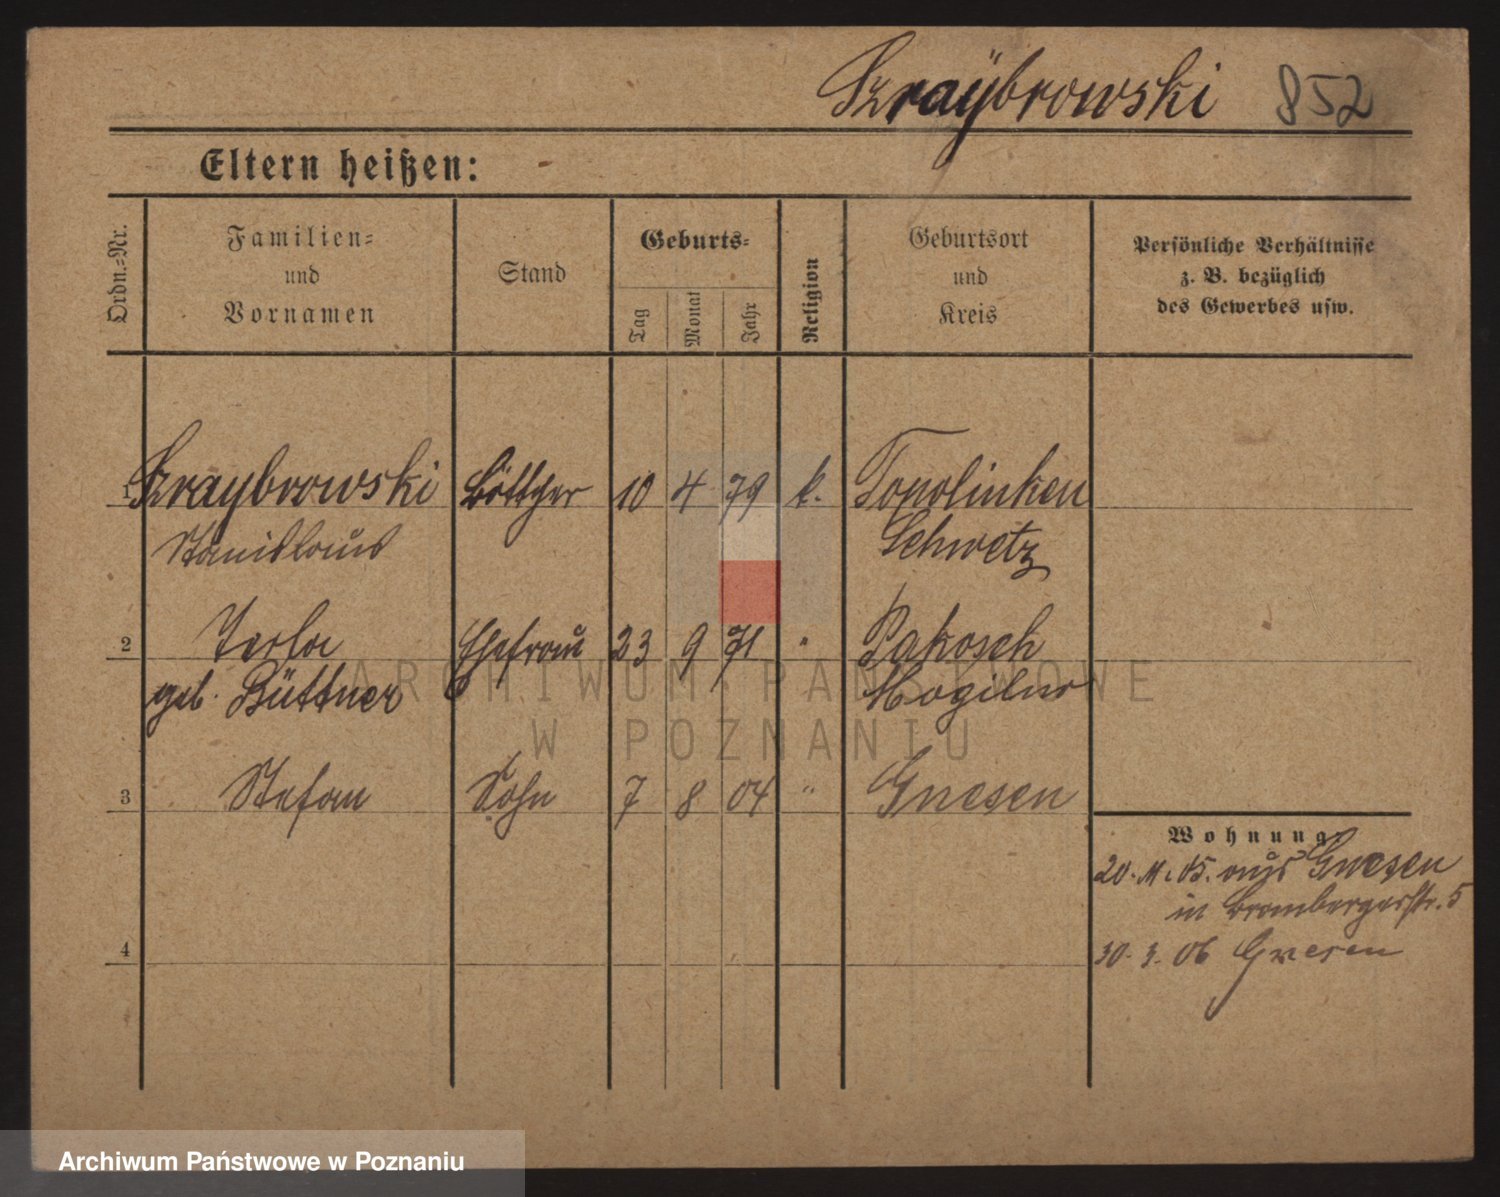 Szraybrowski 852
Eltern heißen:
Ordn.=Nr.
Familien=
und
Vornamen
Stand
Geburts=
Tag
Monat
Jahr
Religion
Geburtsort
und
Kreis
Persönliche Verhältnisse
z. B. bezüglich
des Gewerbes usw.
1 Szraybrowski Böttcher 10 4 79 k. Topolinken
Stanislaus Schwetz
2 Ehefrau 23 9 71 " Pakosch
geb. Büttner Mogilno
3 Stefan Sohn 7 8 04 " Gnesen
Wohnung
20. 11. 05. aus Gnesen
in Brombergerstr. 5
4
30. 3. 06 Gnesen
ARCHIWUM PAŃSTWOWE
W POZNANIU
Archiwum Państwowe w Poznaniu